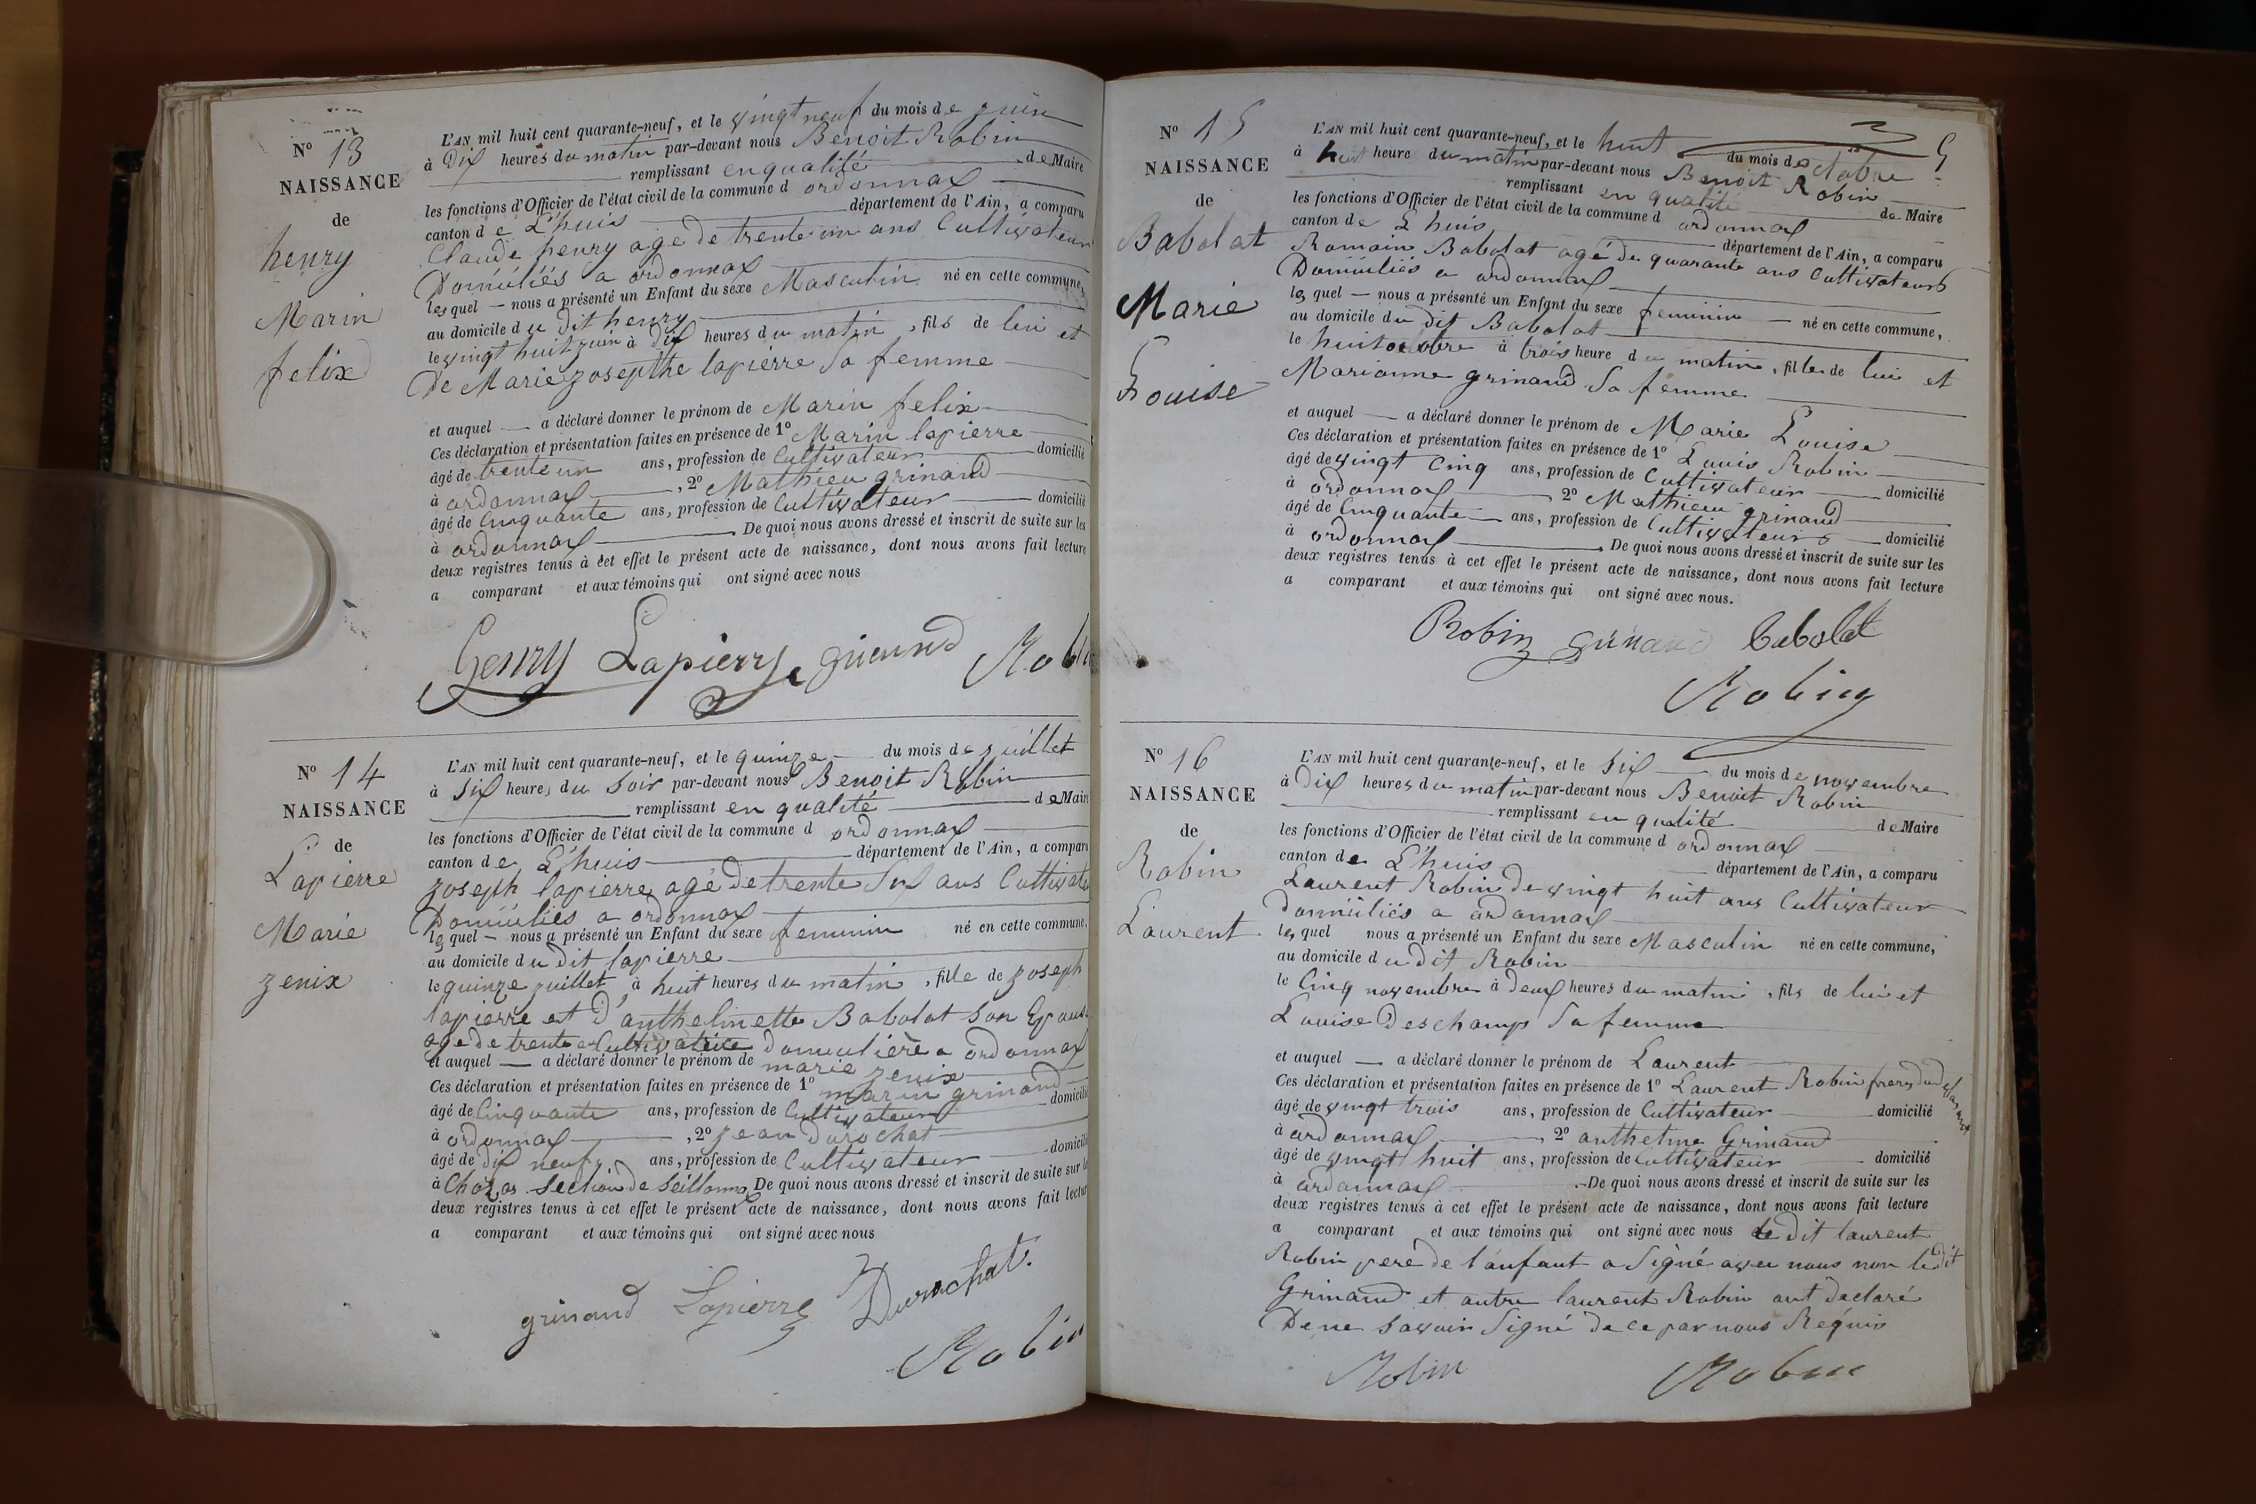 N° 13
NAISSANCE
de
henry
Marin
felix
L'AN mil huit cent quarante-neuf, et le vingt neuf du mois de juin
à Dix heures du matin par-devant nous Benoit Robin
remplissant en qualité de Maire
les fonctions d'Officier de l'état civil de la commune d ordonnax
canton de L'huis département de l'Ain, a comparu
Claude henry age de trente un ans Cultivateur
Domiciliés a ordonnax
lequel — nous a présenté un Enfant du sexe Masculin né en cette commune,
au domicile du dit henry
le vingt huit juin à dix heures du matin, fils de lui et
De Marie josephthe lapierre Sa femme
et auquel — a déclaré donner le prénom de Marin felix
Ces déclaration et présentation faites en présence de 1° Marin lapierre
âgé de trente un ans, profession de Cultivateur domicilié
à ordonnax, 2° Mathieu grinand
âgé de Cinquante ans, profession de Cultivateur domicilié
à ordonnax De quoi nous avons dressé et inscrit de suite sur les
deux registres tenus à cet effet le présent acte de naissance, dont nous avons fait lecture
a comparant et aux témoins qui ont signé avec nous
henry Lapierre grinand Robi
N° 14
NAISSANCE
de
Lapierre
Marie
zenix
L'AN mil huit cent quarante-neuf, et le quinze du mois de juillet
à Six heures du Soir par-devant nous Benoit Robin
remplissant en qualité de Mair
les fonctions d'Officier de l'état civil de la commune d ordonnax
canton de L'huis département de l'Ain, a comparu
joseph lapierre age de trente Six ans Cultivate
Domiciliés a ordonnax
lequel — nous a présenté un Enfant du sexe feminin né en cette commune,
au domicile du dit lapierre
le quinze juillet à huit heures du matin, fille de joseph
lapierre et d'anthelmette Babolat Son Epouse
age de trente Cultivatrice Domiculière a ordonnax
et auquel — a déclaré donner le prénom de marie zenix
Ces déclaration et présentation faites en présence de 1° marin grinand
âgé de Cinquante ans, profession de Cultivateur domicilié
à ordonnax, 2° jean Durochat
âgé de dix neuf ans, profession de Cultivateur domicilié
à Chozas Section de Seillonnaz De quoi nous avons dressé et inscrit de suite sur le
deux registres tenus à cet effet le présent acte de naissance, dont nous avons fait lectur
a comparant et aux témoins qui ont signé avec nous
grinand Lapierre Durochat.
Robin
N° 15
NAISSANCE
de
Babolat
Marie
Louise
L'AN mil huit cent quarante-neuf, et le huit du mois d octobre
à huit heure du matin par-devant nous Benoit Robin
remplissant en qualité de Maire
les fonctions d'Officier de l'état civil de la commune d ordonnax
canton de L'huis département de l'Ain, a comparu
Romain Babolat agé de quarante ans Cultivateurs
Domiciliés a ordonnax
lequel — nous a présenté un Enfant du sexe feminin — né en cette commune,
au domicile du dit Babolat
le huit octobre à trois heure du matin, fille de lui et
Marianne grinand Sa femme
et auquel — a déclaré donner le prénom de Marie Louise
Ces déclaration et présentation faites en présence de 1° Louis Robin
âgé de vingt Cinq ans, profession de Cultivateur domicilié
à ordonnax 2° Mathieu grinand
âgé de Cinquante ans, profession de Cultivateurs domicilié
à ordonnax De quoi nous avons dressé et inscrit de suite sur les
deux registres tenus à cet effet le présent acte de naissance, dont nous avons fait lecture
a comparant et aux témoins qui ont signé avec nous.
Robin grinand babolat
Robin
N° 16
NAISSANCE
de
Robin
Laurent
L'AN mil huit cent quarante-neuf, et le Six du mois de novembre
à Dix heures du matin par-devant nous Benoit Robin
remplissant en qualité de Maire
les fonctions d'Officier de l'état civil de la commune d ordonnax
canton de L'huis département de l'Ain, a comparu
Laurent Robin de vingt huit ans Cultivateur
domiciliés a ordonnax
lequel nous a présenté un Enfant du sexe Masculin né en cette commune,
au domicile du dit Robin
le Cinq novembre à deux heures du matin, fils de lui et
Louise Deschamps Sa femme
et auquel — a déclaré donner le prénom de Laurent
Ces déclaration et présentation faites en présence de 1° Laurent Robin frere du
âgé de vingt trois ans, profession de Cultivateur domicilié
à ordonnax, 2° anthelme Grinand
âgé de vingt huit ans, profession de Cultivateur domicilié
à ordonnax De quoi nous avons dressé et inscrit de suite sur les
deux registres tenus à cet effet le présent acte de naissance, dont nous avons fait lecture
a comparant et aux témoins qui ont signé avec nous le dit laurent
Robin pere de l'anfant a Signé avec nous non ledit
Grinand et autre laurent Robin ont déclaré
De ne Savoir Signé de ce par nous Réquis
Robin Robin